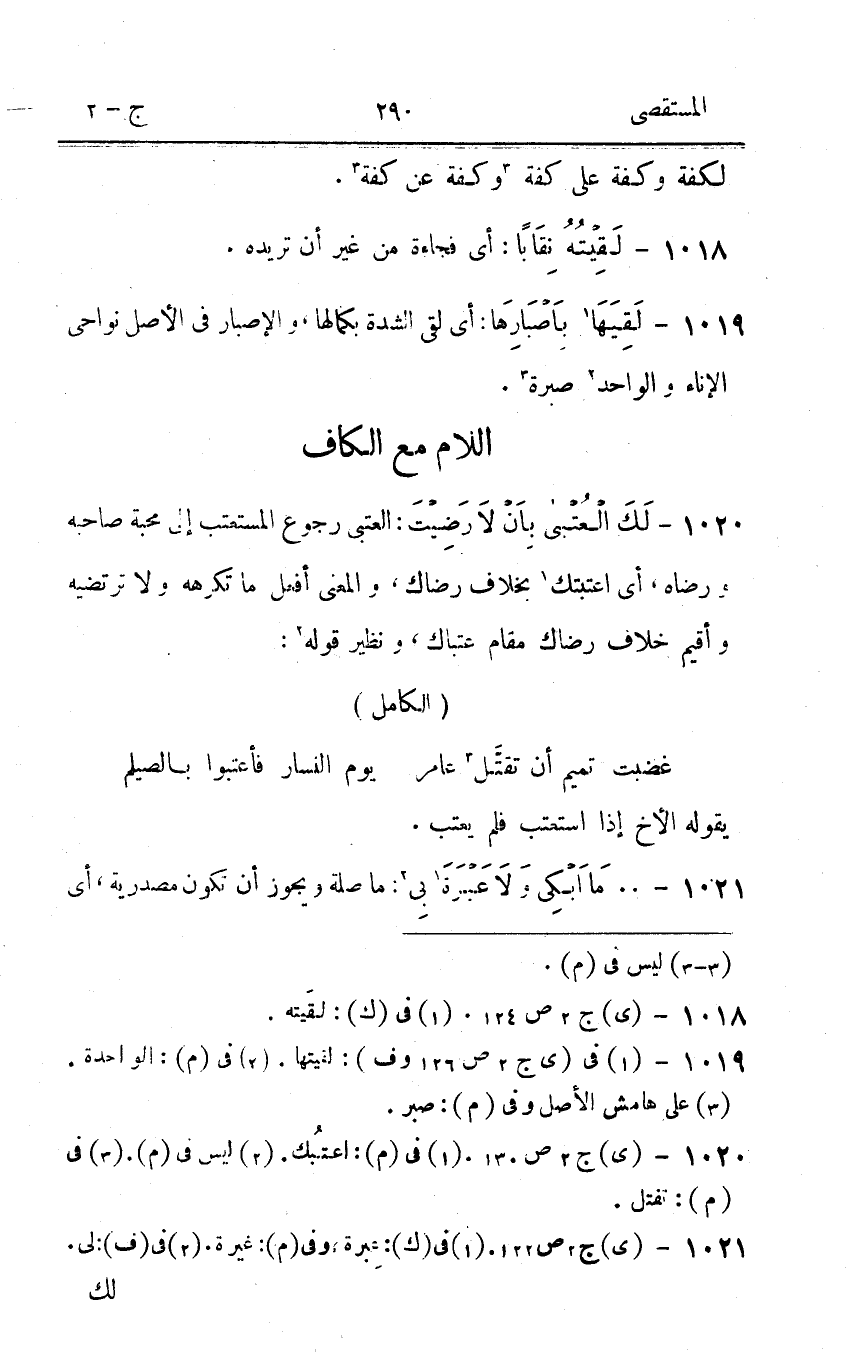 المستقصى ٢٩٠ ج – ٢
لكفة وكفة على كفة ٣وكفة عن كفة٣ .
١٠١٨ – لَقِيْتُهُ نِقَابًا : أى فجاءة من غير أن تريده .
١٠١٩ – لَقِيَهَا١ بِأَصْبَارِهَا : أى لقى الشدة بكمالها ، و الإصبار فى الأصل نواحى
الإناء و الواحد٢ صبرة٣ .
اللام مع الكاف
١٠٢٠ – لَكَ الْعُتْبىٰ بِأَنْ لَا رَضِيْتَ : العتبى رجوع المستعتب إلى محبة صاحبه
و رضاه ، أى اعتبتك١ بخلاف رضاك ، و المعنى أفعل ما تكرهه و لا ترتضيه
و أقيم خلاف رضاك مقام عتباك ، و نظير قوله٢ :
( الكامل )
غضبت تميم أن تقتَّل٣ عامر يوم النسار فأعتبوا بالصيلم
يقوله الأخ إذا استعتب فلم يعتب .
١٠٢١ – .. مَا أَبْكِى وَ لَا عَبْرَةَ١ بِى٢ : ما صلة و يجوز أن تكون مصدرية ، أى
(٣-٣) ليس فى (م) .
١٠١٨ – (ى) ج ٢ ص ١٢٤ . (١) فى (ك) : لقَيته .
١٠١٩ – (١) فى (ى ج ٢ ص ١٢٦ وف ) : لقيتها . (٢) فى (م) : الواحدة .
(٣) على هامش الأصل و فى ( م ) : صبر .
١٠٢٠ – (ى) ج ٢ ص ١٣٠ . (١) فى (م) : اعتبُك . (٢) ليس فى (م) . (٣) فى
( م ) : تفتل .
١٠٢١ – (ى) ج ٢ ص ١٢٢ . (١) فى (ك) : عِبرة ، وفى (م) : غيرة . (٢) فى (ف) : لى .
لك